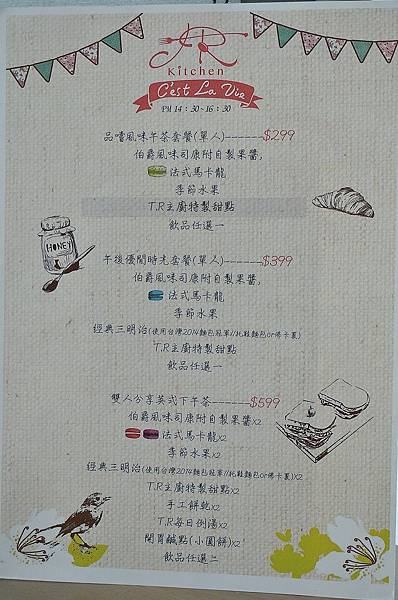 TR
Kitchen
C'est La Vie
PM 14：30~16：30
品嚐風味午茶套餐(單人)------$299
伯爵風味司康附自製果醬,
法式馬卡龍
季節水果
T.R主廚特製甜點
飲品任選一
HONEY
午後優閒時光套餐(單人)------$399
伯爵風味司康附自製果醬,
法式馬卡龍
季節水果
經典三明治(使用台灣2014麵包冠軍//托鞋麵包or佛卡夏)
T.R主廚特製甜點
飲品任選一
雙人分享英式下午茶-------$599
伯爵風味司康附自製果醬X2
法式馬卡龍X2
季節水果X2
經典三明治(使用台灣2014麵包冠軍//托鞋麵包or佛卡夏)X2
T.R主廚特製甜點X2
手工餅乾X2
T.R每日例湯X2
開胃鹹點(小圓餅)X2
飲品任選二